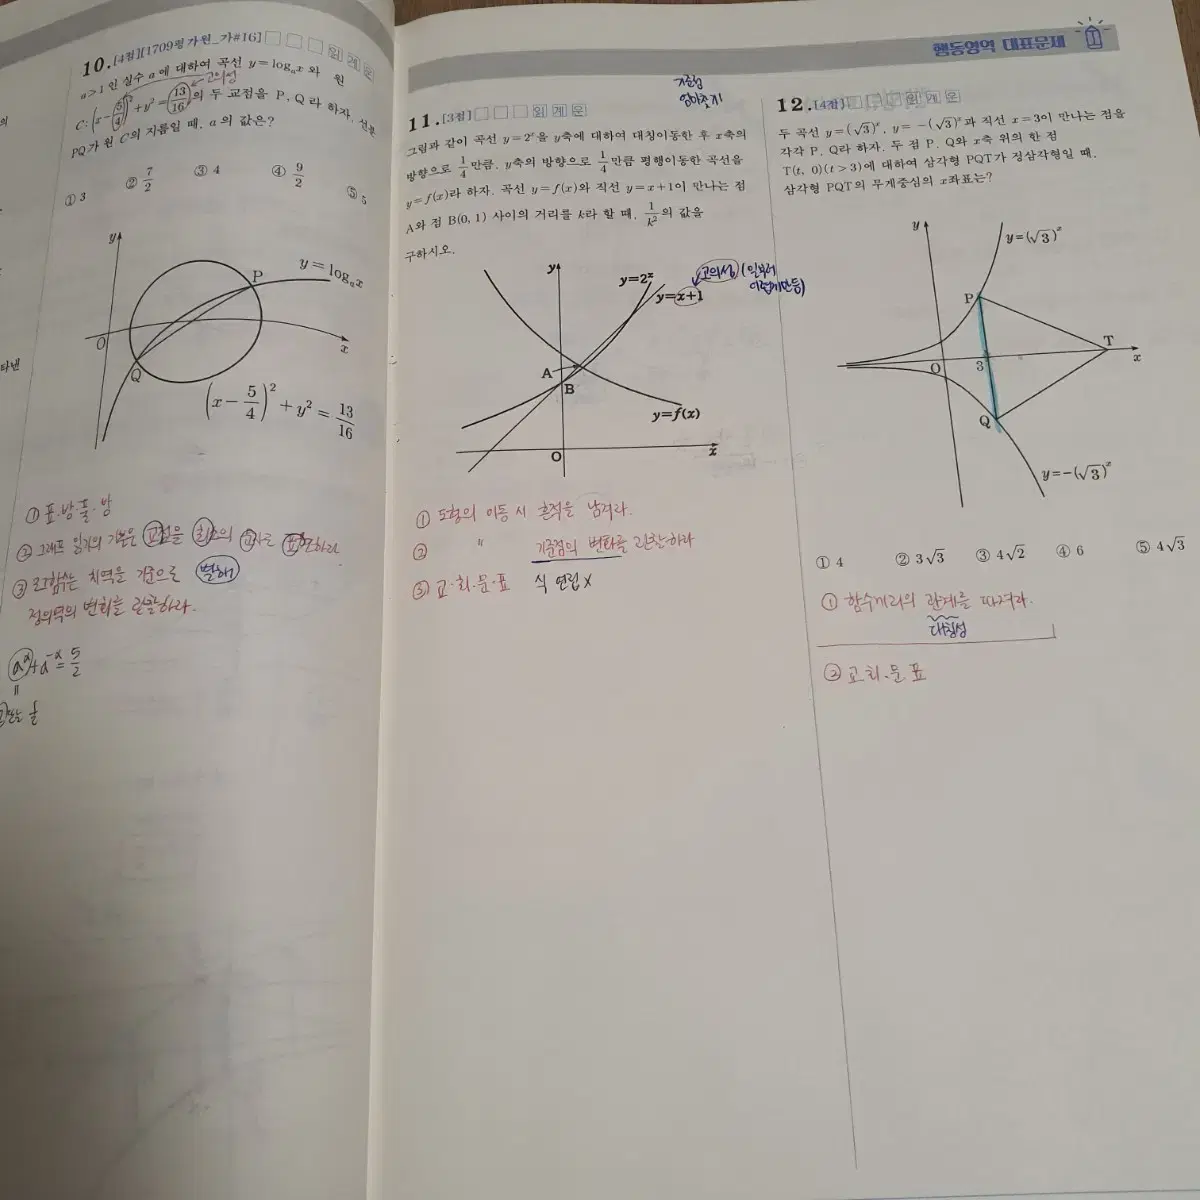 10. [4점][1709평가원_가#16] 외 계 운
a>1인 실수 a에 대하여 곡선 y=logₐx와 원
C: (x-5/4)²+y²=13/16의 두 교점을 P, Q라 하자. 선분
PQ가 원 C의 지름일 때, a의 값은?
고의성
① 3 ② 7/2 ③ 4 ④ 9/2 ⑤ 5
y
P
y=logₐx
O
x
Q
(x-5/4)²+y²=13/16
① 표·방·풀·방
② 그래프 읽기의 기본은 교점을 최소의 문자로 표현하라
③ 로그함수는 치역을 기준으로 별해
정의역의 변화를 관찰하라.
타낸
행동영역 대표문제 Ⅰ
기준점
11. [3점] 외 계 운
그림과 같이 곡선 y=2ˣ을 y축에 대하여 대칭이동한 후 x축의
방향으로 1/4만큼, y축의 방향으로 1/4만큼 평행이동한 곡선을
y=f(x)라 하자. 곡선 y=f(x)와 직선 y=x+1이 만나는 점
A와 점 B(0, 1) 사이의 거리를 k라 할 때, 1/k²의 값을
구하시오.
고의성 (일부러
어렵게만듦)
y
y=2ˣ
y=x+1
A
B
y=f(x)
O
x
① 도형의 이동 시 흔적을 남겨라.
② 〃 기준점의 변화를 관찰하라
③ 교·최·문·표 식 연립 x
12. [4점] 외 계 운
두 곡선 y=(√3)ˣ, y=-(√3)ˣ과 직선 x=3이 만나는 점을
각각 P, Q라 하자. 두 점 P, Q와 x축 위의 한 점
T(t, 0)(t>3)에 대하여 삼각형 PQT가 정삼각형일 때,
삼각형 PQT의 무게중심의 x좌표는?
y
y=(√3)ˣ
P
O
3
T
x
Q
y=-(√3)ˣ
① 4 ② 3√3 ③ 4√2 ④ 6 ⑤ 4√3
① 함수끼리의 관계를 따져라.
대칭성
② 교·최·문·표